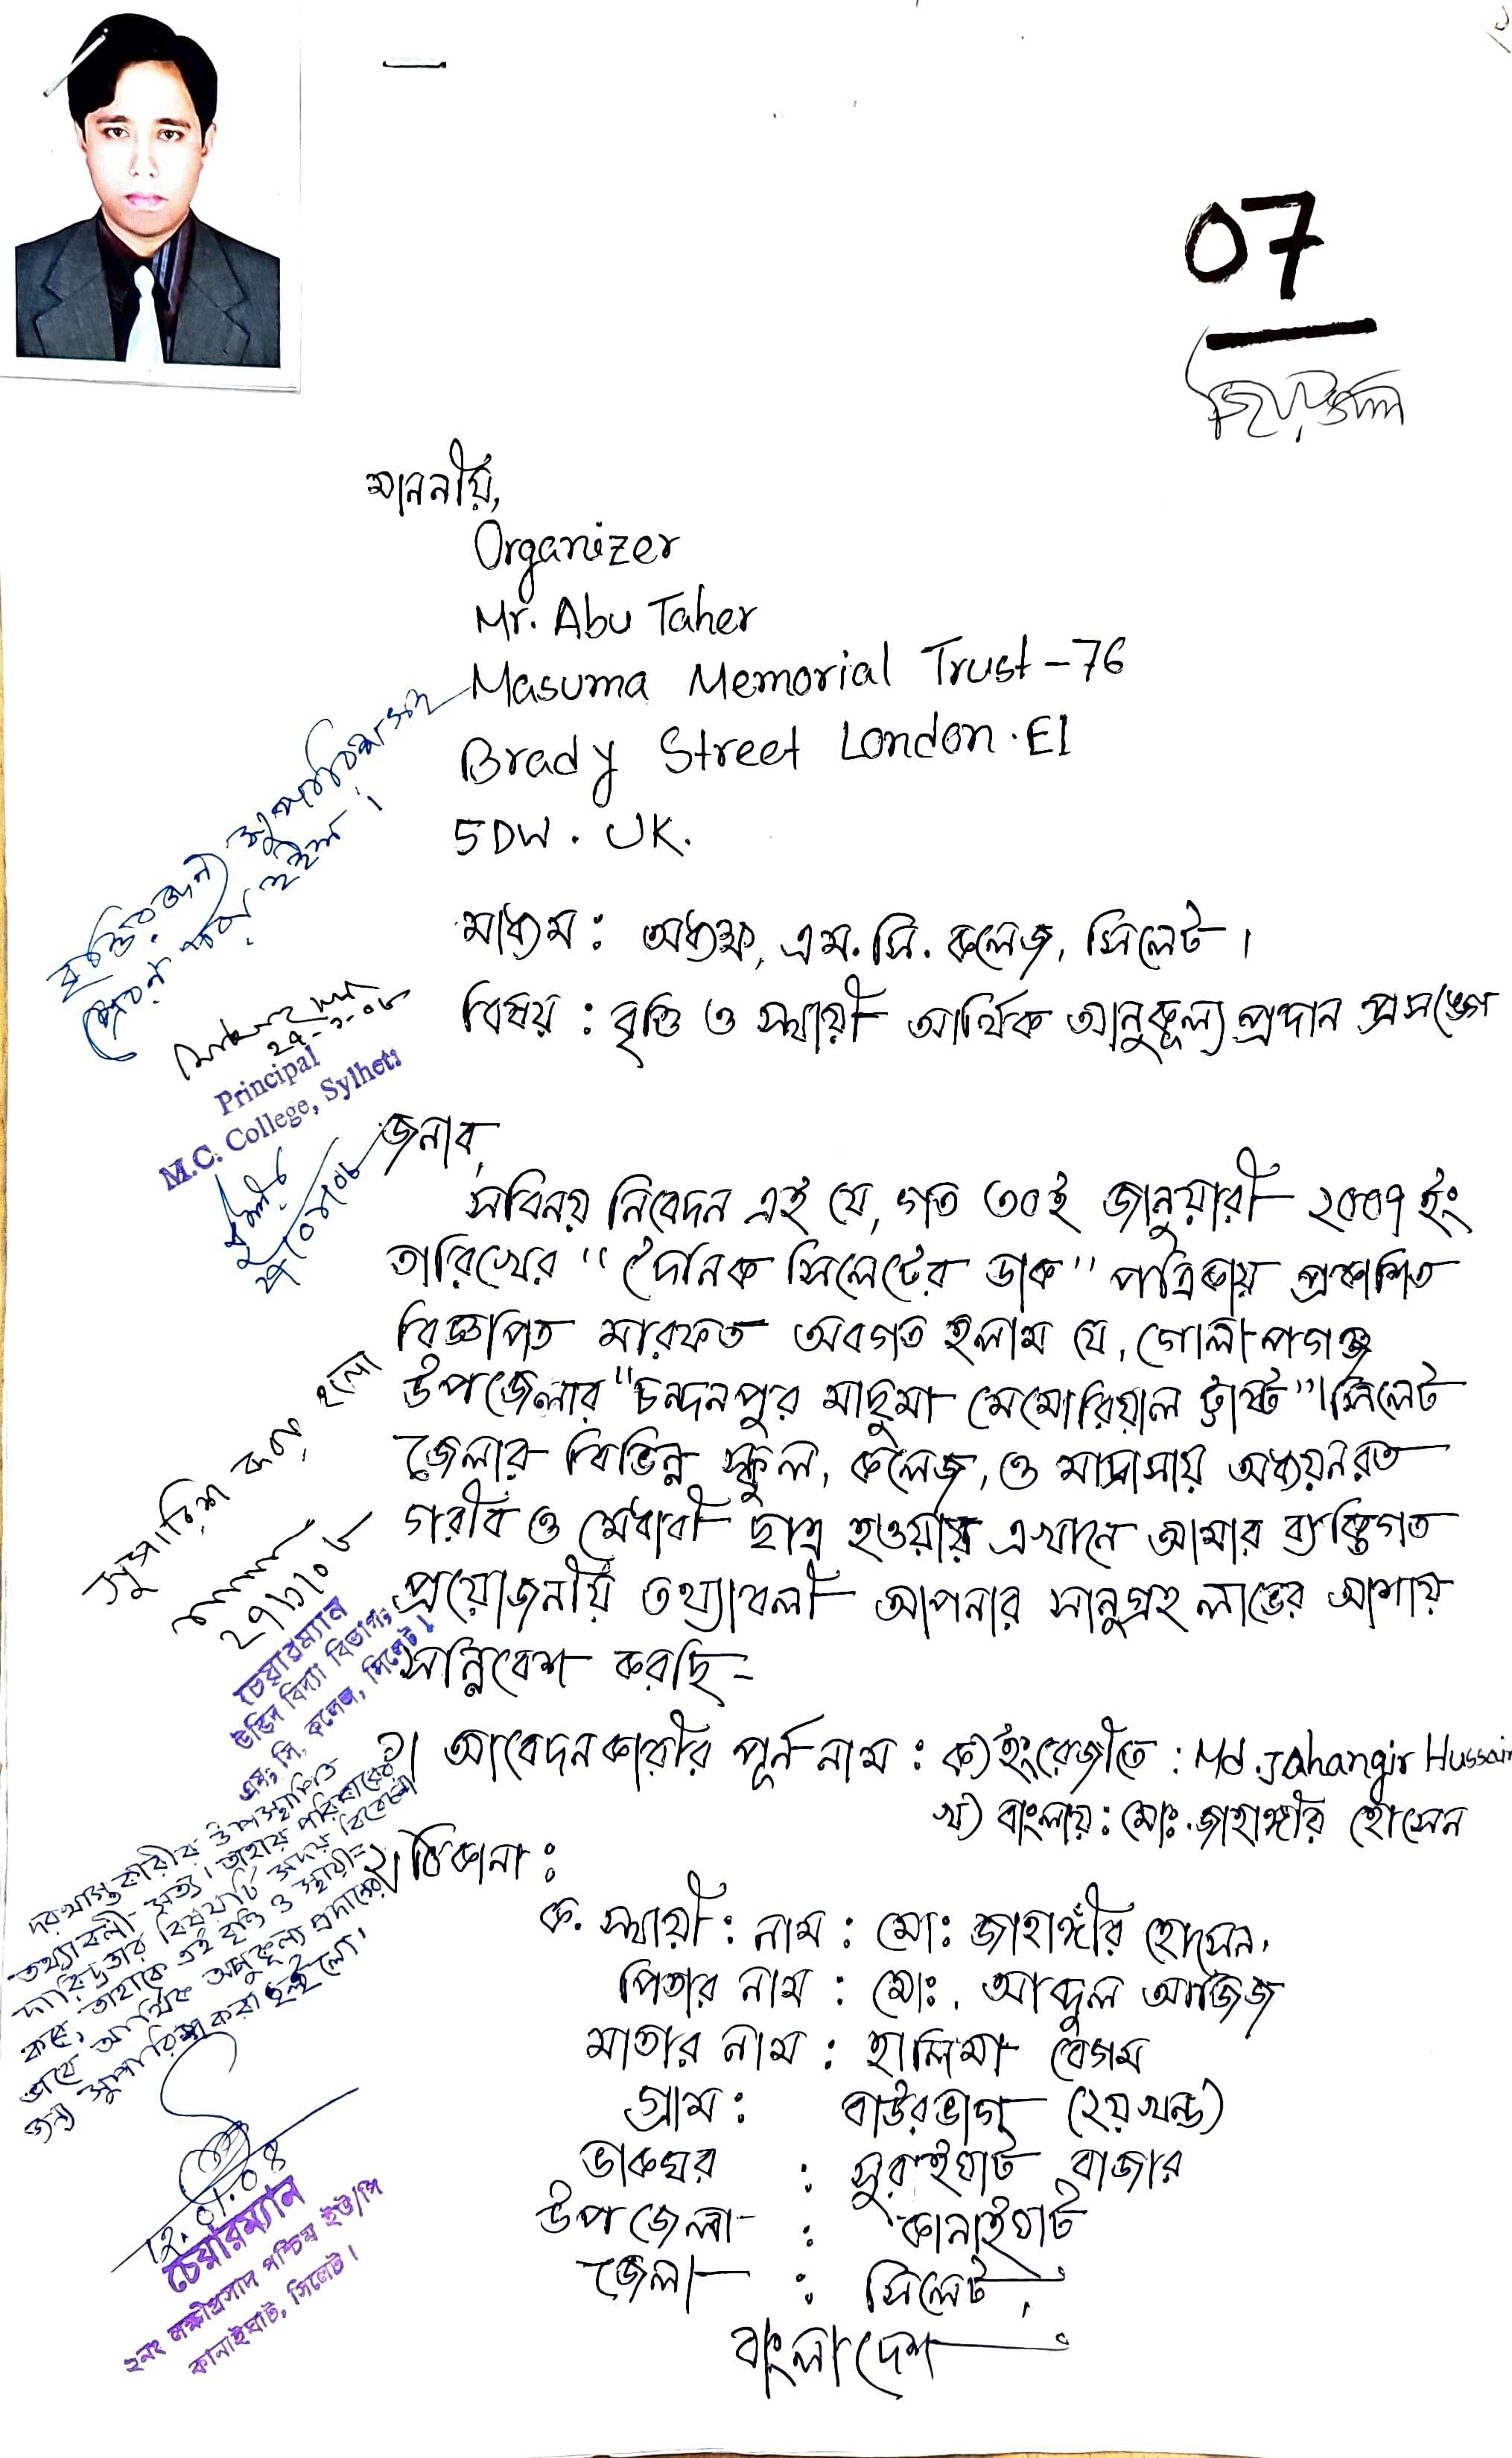 07
মাননীয়,
Organizer
Mr. Abu Taher
Masuma Memorial Trust-76
Brady Street London.E1
5DW. UK.
মাধ্যম: অধ্যক্ষ, এম.সি. কলেজ, সিলেট।
বিষয়: বৃত্তি ও স্থায়ী আর্থিক আনুকূল্য প্রদান প্রসঙ্গে
জনাব,
সবিনয় নিবেদন এই যে, গত ৩০ই জানুয়ারী ২০০৭ ইং
তারিখের "দৈনিক সিলেটের ডাক" পত্রিকায় প্রকাশিত
বিজ্ঞাপিত মারফত অবগত হলাম যে, গোলাপগঞ্জ
উপজেলার "চন্দনপুর মাছুমা মেমোরিয়াল ট্রাষ্ট"। সিলেট
জেলার বিভিন্ন স্কুল, কলেজ, ও মাদ্রাসায় অধ্যয়নরত
গরীব ও মেধাবী ছাত্র হওয়ায় এখানে আমার ব্যক্তিগত
প্রয়োজনীয় তথ্যাবলী আপনার সানুগ্রহ লাভের আশায়
সন্নিবেশ করছি-
১। আবেদনকারীর পূর্ন নাম: ক) ইংরেজীতে: Md. Jahangir Hussain
খ) বাংলায়: মোঃ জাহাঙ্গীর হোসেন
২। ঠিকানা:
ক. স্থায়ী: নাম: মোঃ জাহাঙ্গীর হোসেন,
পিতার নাম: মোঃ. আব্দুল আজিজ
মাতার নাম: হালিমা বেগম
গ্রাম: বাউরভাগ (২য় খন্ড)
ডাকঘর: সুরাইঘাট বাজার
উপজেলা: কানাইঘাট
জেলা: সিলেট,
বাংলাদেশ
প্রেরণ করা হইল।
Principal
M.C. College, Sylhet.
সুপারিশ করা হলো
চেয়ারম্যান
উদ্ভিদ বিদ্যা বিভাগ,
এম, সি, কলেজ, সিলেট।
দরখাস্তকারীর উপস্থাপিত
তথ্যাবলী সত্য। তাহার পরিবারের
দারিদ্রতার বিষয়টি সদয় বিবেচনা
করে, তাহাকে এই বৃত্তি ও স্থায়ী-
ভাবে আর্থিক অনুকূল্য প্রদানের
জন্য সুপারিশ করা হইলো।
চেয়ারম্যান
২নং লক্ষীপ্রসাদ পশ্চিম ইউ/পি
কানাইঘাট, সিলেট।